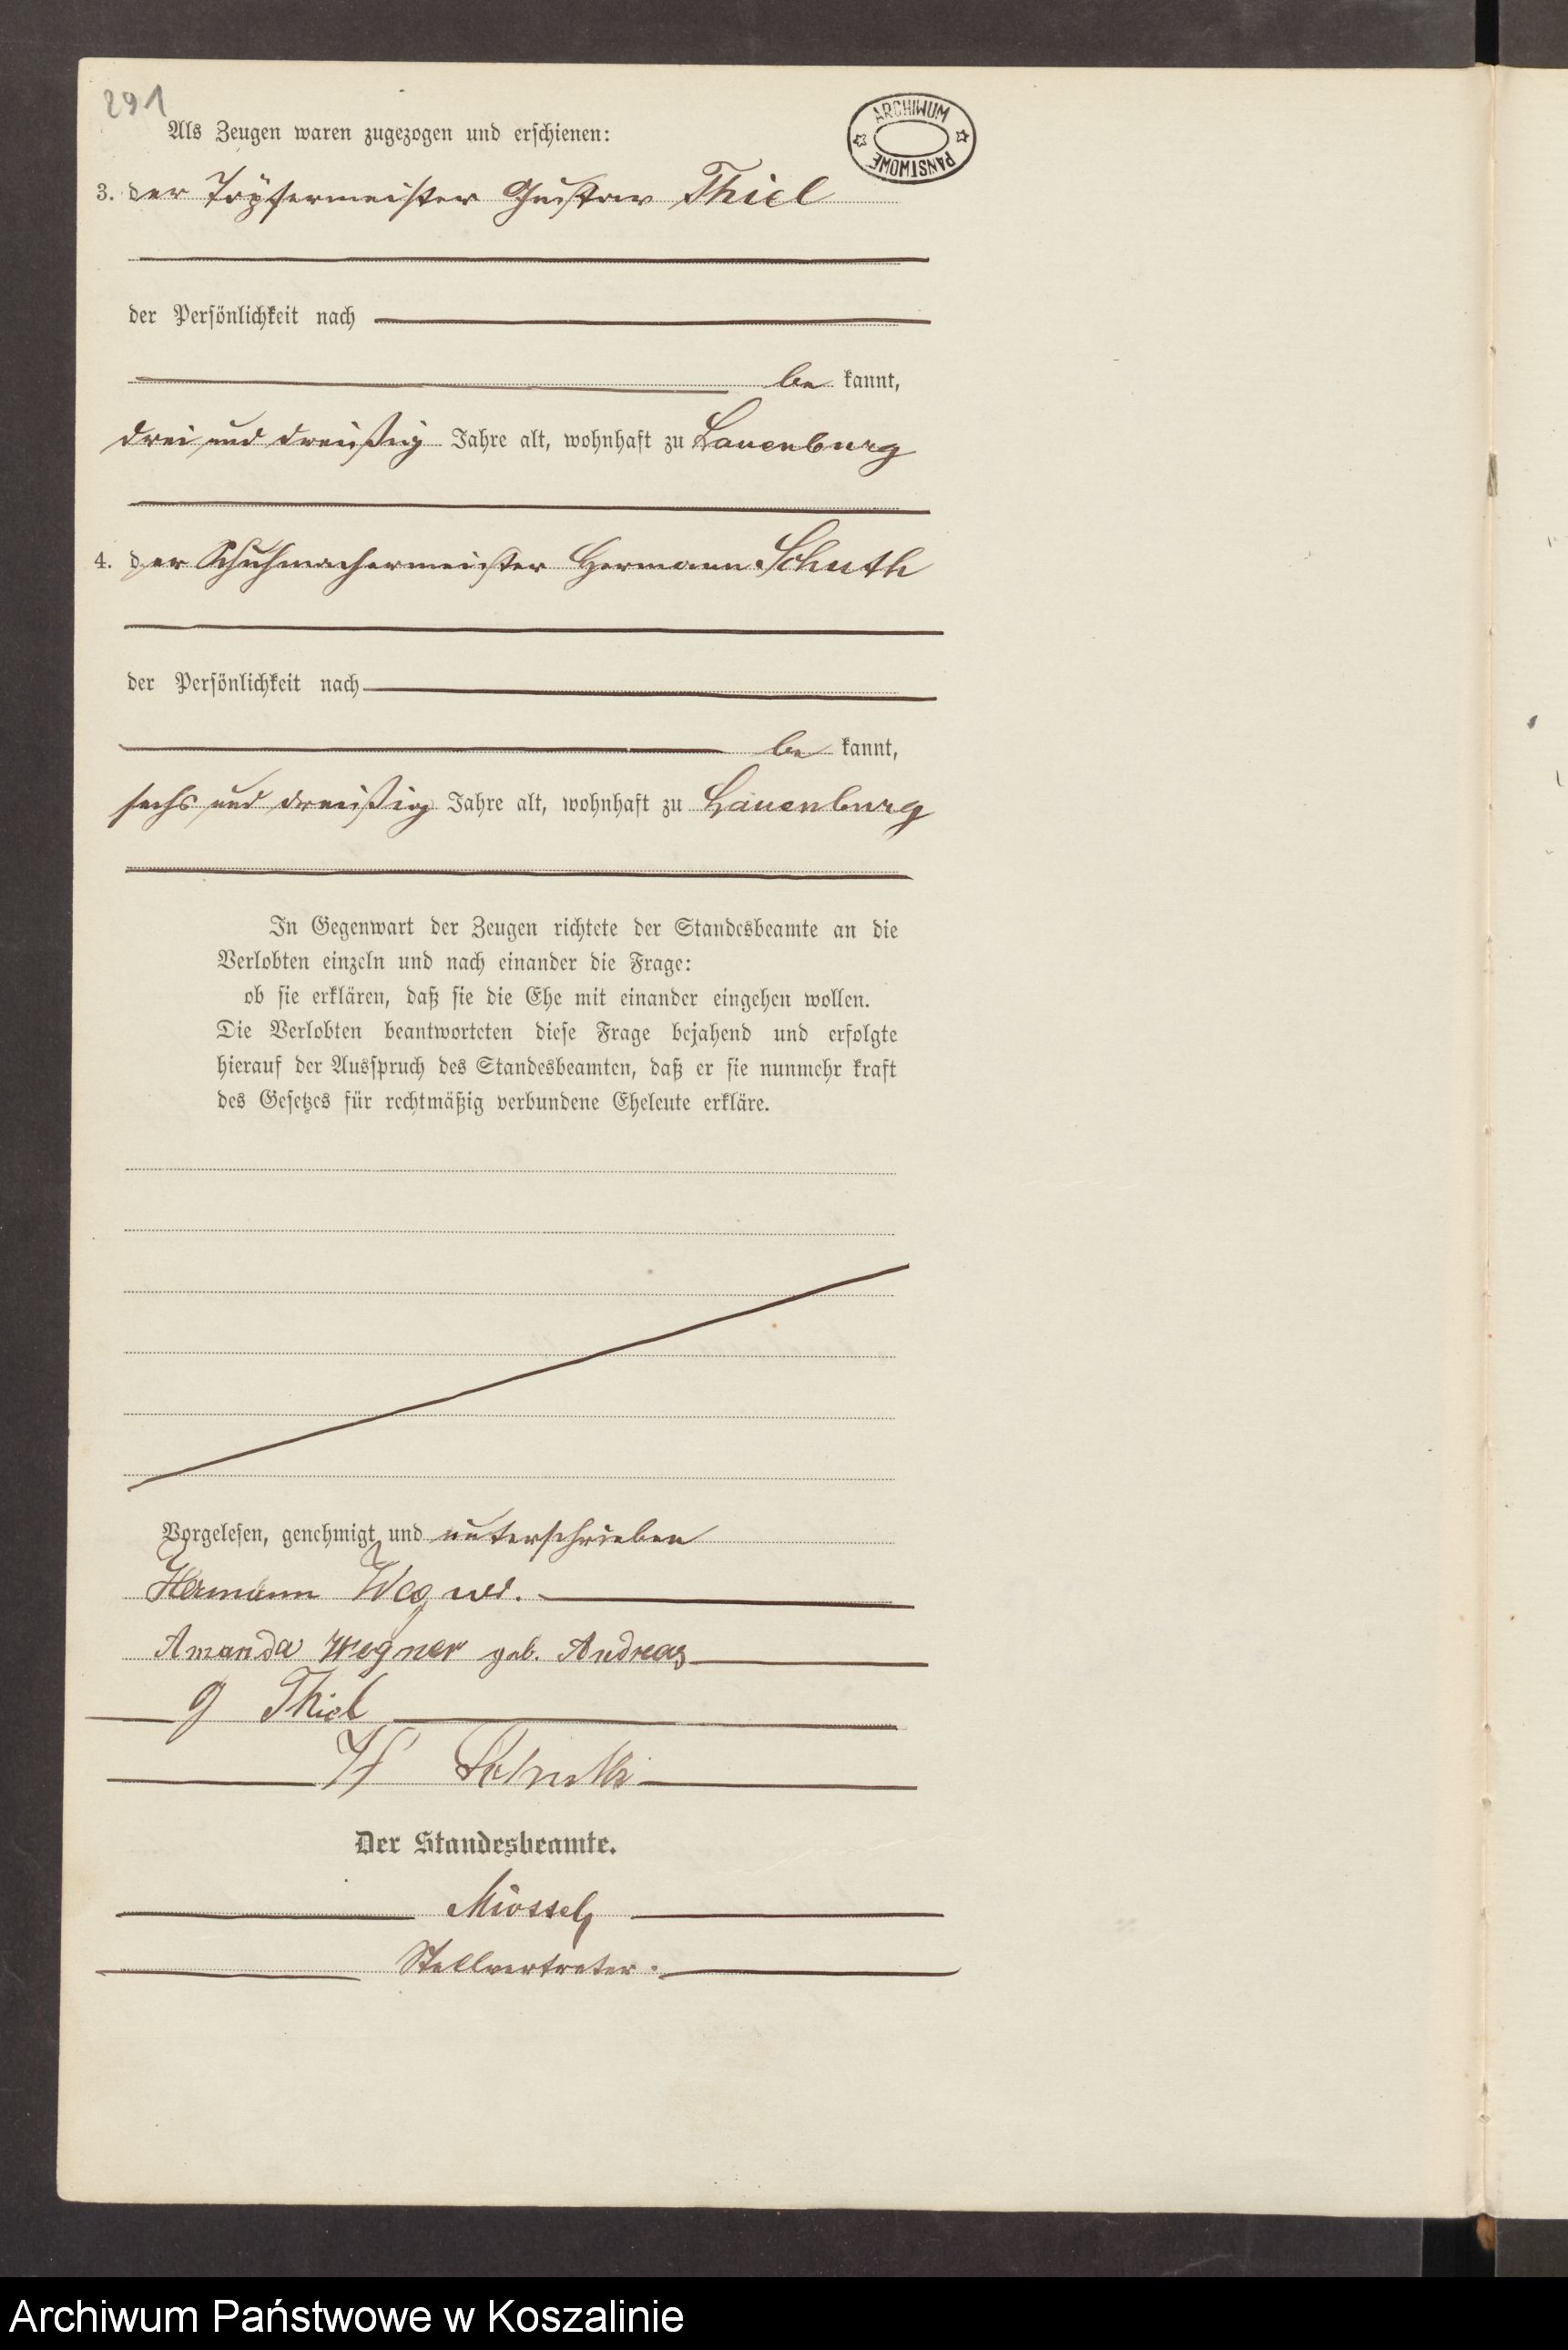 291
Als Zeugen waren zugezogen und erschienen:
ARCHIWUM PAŃSTWOWE
3. der Töpfermeister Gustav Thiel
der Persönlichkeit nach
be kannt,
drei und dreißig Jahre alt, wohnhaft zu Lauenburg
4. der Schuhmachermeister Hermann Schuth
der Persönlichkeit nach
be kannt,
sechs und dreißig Jahre alt, wohnhaft zu Lauenburg
In Gegenwart der Zeugen richtete der Standesbeamte an die
Verlobten einzeln und nach einander die Frage:
ob sie erklären, daß sie die Ehe mit einander eingehen wollen.
Die Verlobten beantworteten diese Frage bejahend und erfolgte
hierauf der Ausspruch des Standesbeamten, daß er sie nunmehr kraft
des Gesetzes für rechtmäßig verbundene Eheleute erkläre.
Vorgelesen, genehmigt und unterschrieben
Hermann Wegner.
Amanda Wegner geb. Andreas
G Thiel
H Schuth
Der Standesbeamte.
Stellvertreter.
Archiwum Państwowe w Koszalinie